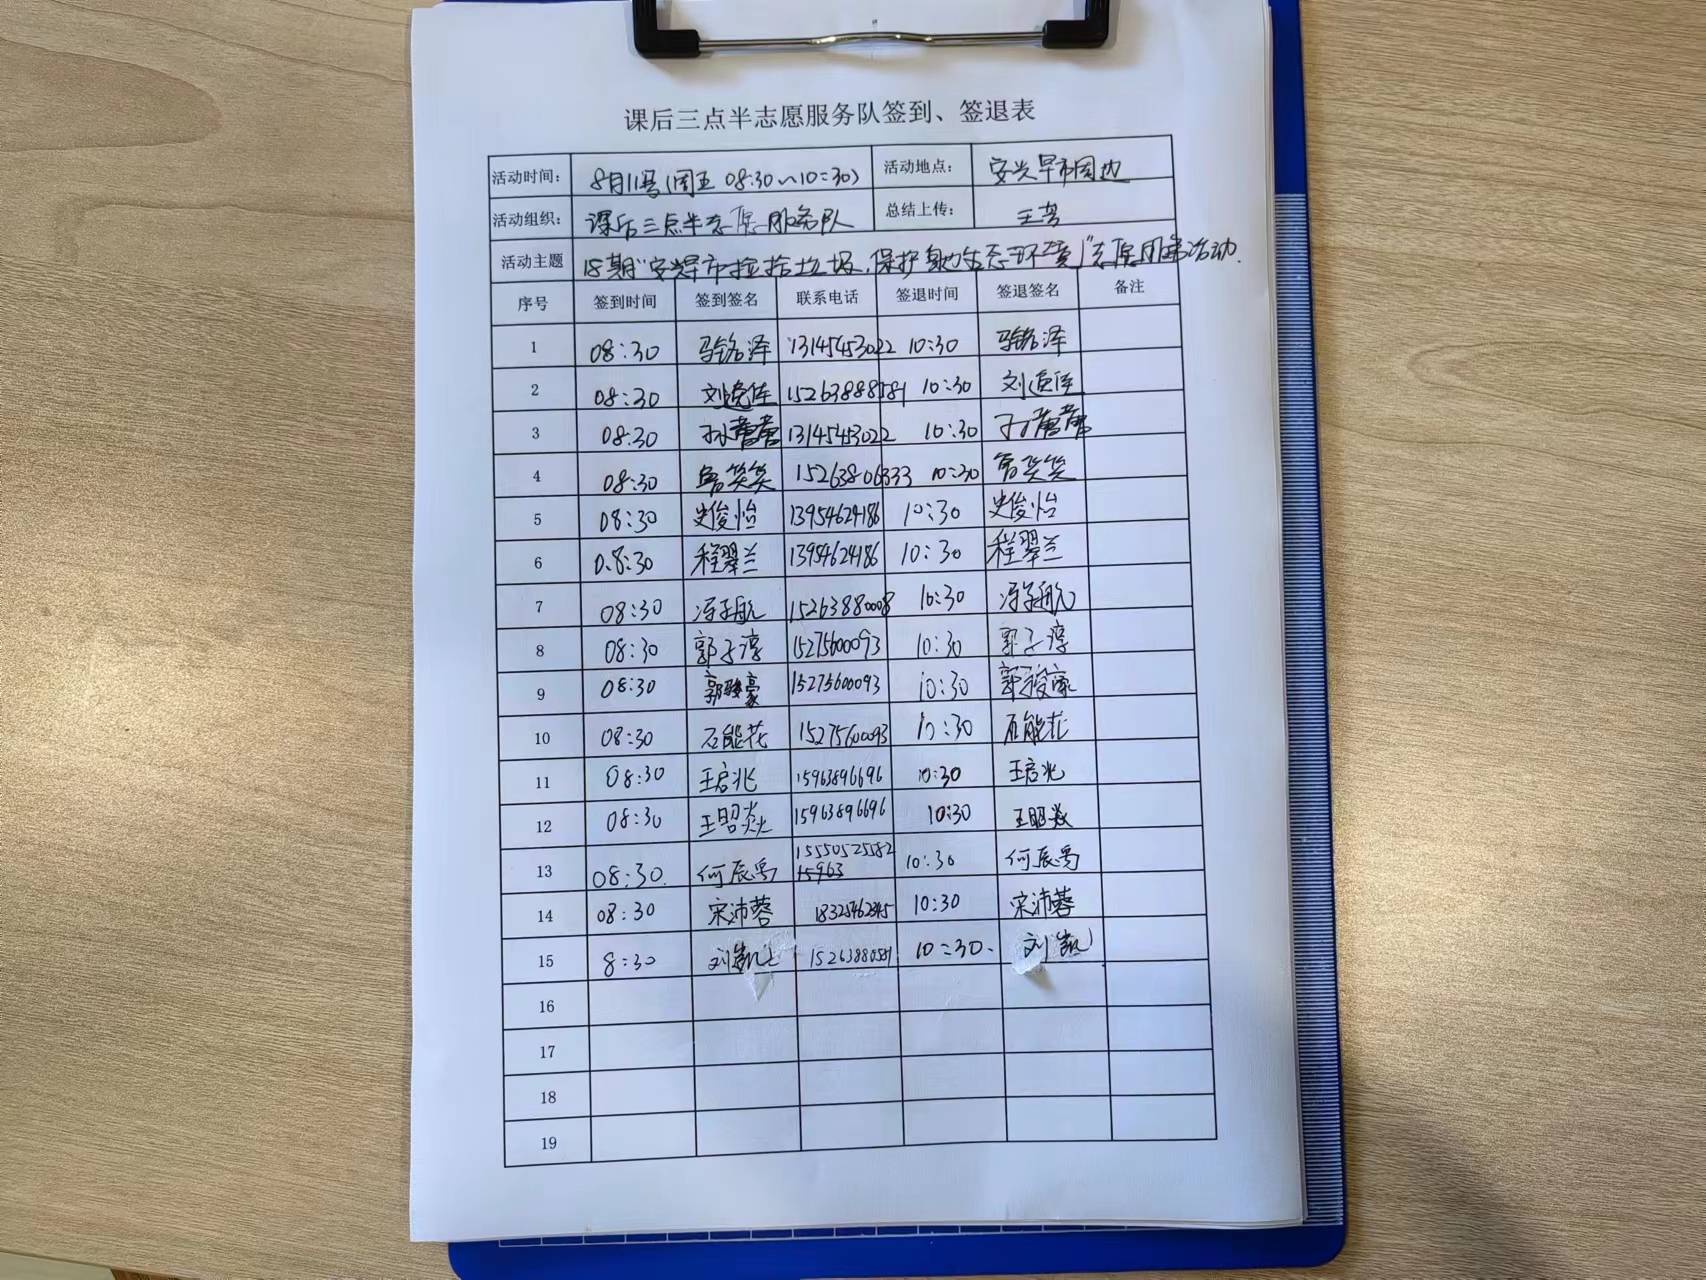 课后三点半志愿服务队签到、签退表
活动时间: 8月11号(周五 08:30~10:30) 活动地点: 安兴早市周边
活动组织: 课后三点半志愿服务队 总结上传: 王
活动主题 18期"安兴早市捡拾垃圾,保护身边生态环境"志愿服务活动.
序号 签到时间 签到签名 联系电话 签退时间 签退签名 备注
1 08:30 马铭泽 13145453022 10:30 马铭泽
2 08:30 刘逸佳 15263888581 10:30 刘逸佳
3 08:30 孙蕾蕾 13145453022 10:30 孙蕾蕾
4 08:30 鲁笑笑 15263806333 10:30 鲁笑笑
5 08:30 史俊怡 13954624186 10:30 史俊怡
6 08:30 程翠兰 13954624186 10:30 程翠兰
7 08:30 冯子航 15263880008 10:30 冯子航
8 08:30 郭子淳 15275600093 10:30 郭子淳
9 08:30 郭骏豪 15275600093 10:30 郭骏豪
10 08:30 石能花 15275600093 10:30 石能花
11 08:30 王启兆 15963896696 10:30 王启兆
12 08:30 王昭焱 15963896696 10:30 王昭焱
13 08:30. 何辰禹 15550525582 10:30 何辰禹
15963
14 08:30 宋沛蓉 18325462345 10:30 宋沛蓉
15 8:30 刘凯 15263880581 10:30. 刘凯
16
17
18
19